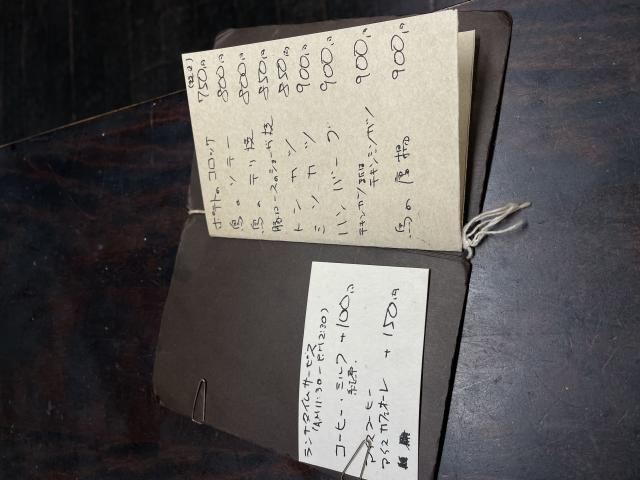 (税込)
ポテトのコロッケ 750円
鳥のソテー 800円
鳥のテリ焼 800円
豚ロースのショーガ焼 850円
トンカツ 850円
ミンカツ 900円
ハンバーグ 900円
チキンカツ
チキンミンカツ 900円
鳥の唐揚 900円
ランチタイムサービス
(AM11:30-P.M2:30)
コーヒー・ミルク +100円
紅茶.
アイスコーヒー
アイスカフェオーレ +150円